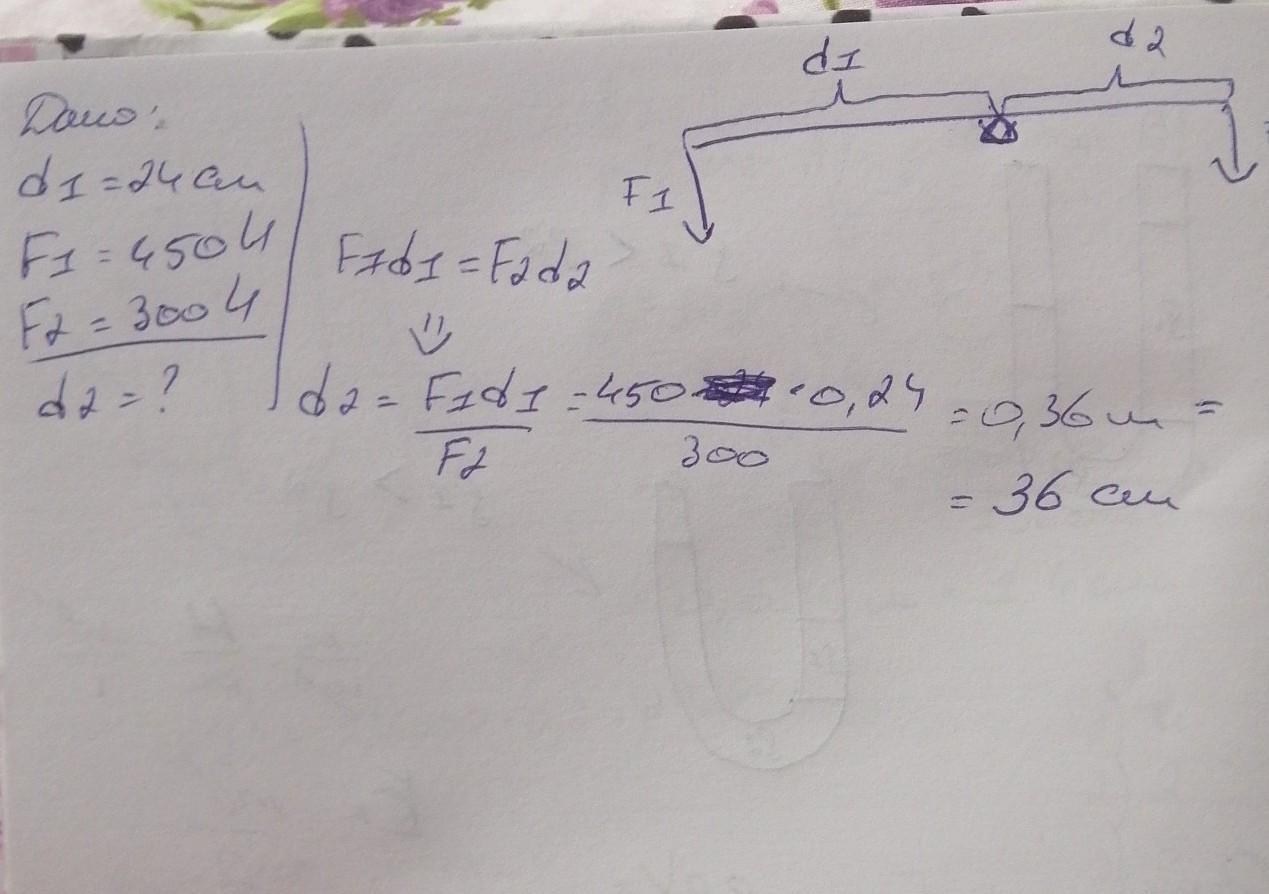 Дано:
d1 = 24 см
F1 = 450 Н
F2 = 300 Н
d2 = ?
F1d1 = F2d2
⇓
d2 = F1d1 / F2 = 450 · 0,24 / 300 = 0,36 м =
= 36 см
d1
d2
F1